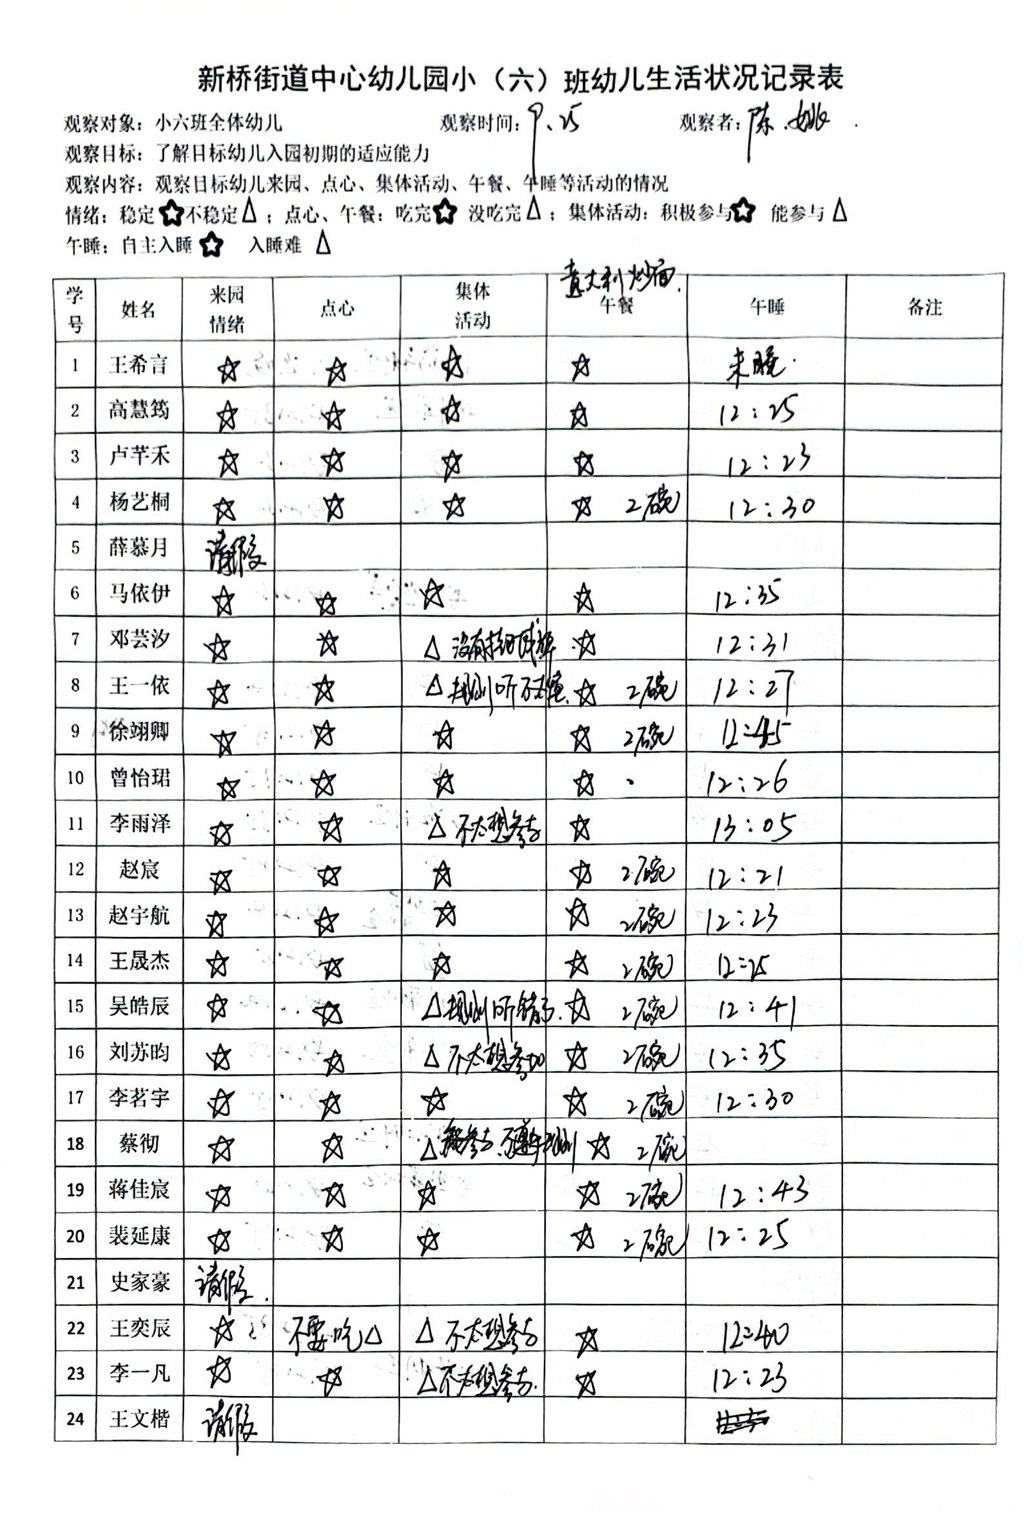 新桥街道中心幼儿园小（六）班幼儿生活状况记录表
观察对象：小六班全体幼儿 观察时间：9.25 观察者：陈.姚
观察目标：了解目标幼儿入园初期的适应能力
观察内容：观察目标幼儿来园、点心、集体活动、午餐、午睡等活动的情况
情绪：稳定☆不稳定△；点心、午餐：吃完☆ 没吃完△；集体活动：积极参与☆ 能参与△
午睡：自主入睡☆ 入睡难 △
意大利炒面.
学号 姓名 来园情绪 点心 集体活动 午餐 午睡 备注
1 王希言 ☆ ☆ ☆ ☆ 未睡.
2 高慧筠 ☆ ☆ ☆ ☆ 12:25
3 卢芊禾 ☆ ☆ ☆ ☆ 12:23
4 杨艺桐 ☆ ☆ ☆ ☆ 2碗 12:30
5 薛慕月 请假
6 马依伊 ☆ ☆ ☆ ☆ 12:35
7 邓芸汐 ☆ ☆ △ 没有 ☆ 12:31
8 王一依 ☆ ☆ △ 规则听不懂. ☆ 2碗 12:27
9 徐翊卿 ☆ ☆ ☆ ☆ 2碗 12:45
10 曾怡珺 ☆ ☆ ☆ ☆ 12:26
11 李雨泽 ☆ ☆ △ 不太想参与 ☆ 13:05
12 赵宸 ☆ ☆ ☆ ☆ 2碗 12:21
13 赵宇航 ☆ ☆ ☆ ☆ 2碗 12:23
14 王晟杰 ☆ ☆ ☆ ☆ 2碗 12:25
15 吴皓辰 ☆ ☆ △ 规则听错了. ☆ 2碗 12:41
16 刘苏昀 ☆ ☆ △ 不太想参加 ☆ 2碗 12:35
17 李茗宇 ☆ ☆ ☆ ☆ 2碗 12:30
18 蔡彻 ☆ ☆ △ 能参与.不遵守规则 ☆ 2碗
19 蒋佳宸 ☆ ☆ ☆ ☆ 2碗 12:43
20 裴延康 ☆ ☆ ☆ ☆ 2碗 12:25
21 史家豪 请假.
22 王奕辰 ☆ 不要吃△ △ 不太想参与 ☆ 12:40
23 李一凡 ☆ ☆ △不太想参与. ☆ 12:23
24 王文楷 请假